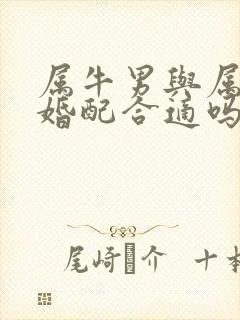 属牛男與属
婚配合適吗
尾崎 介 十本